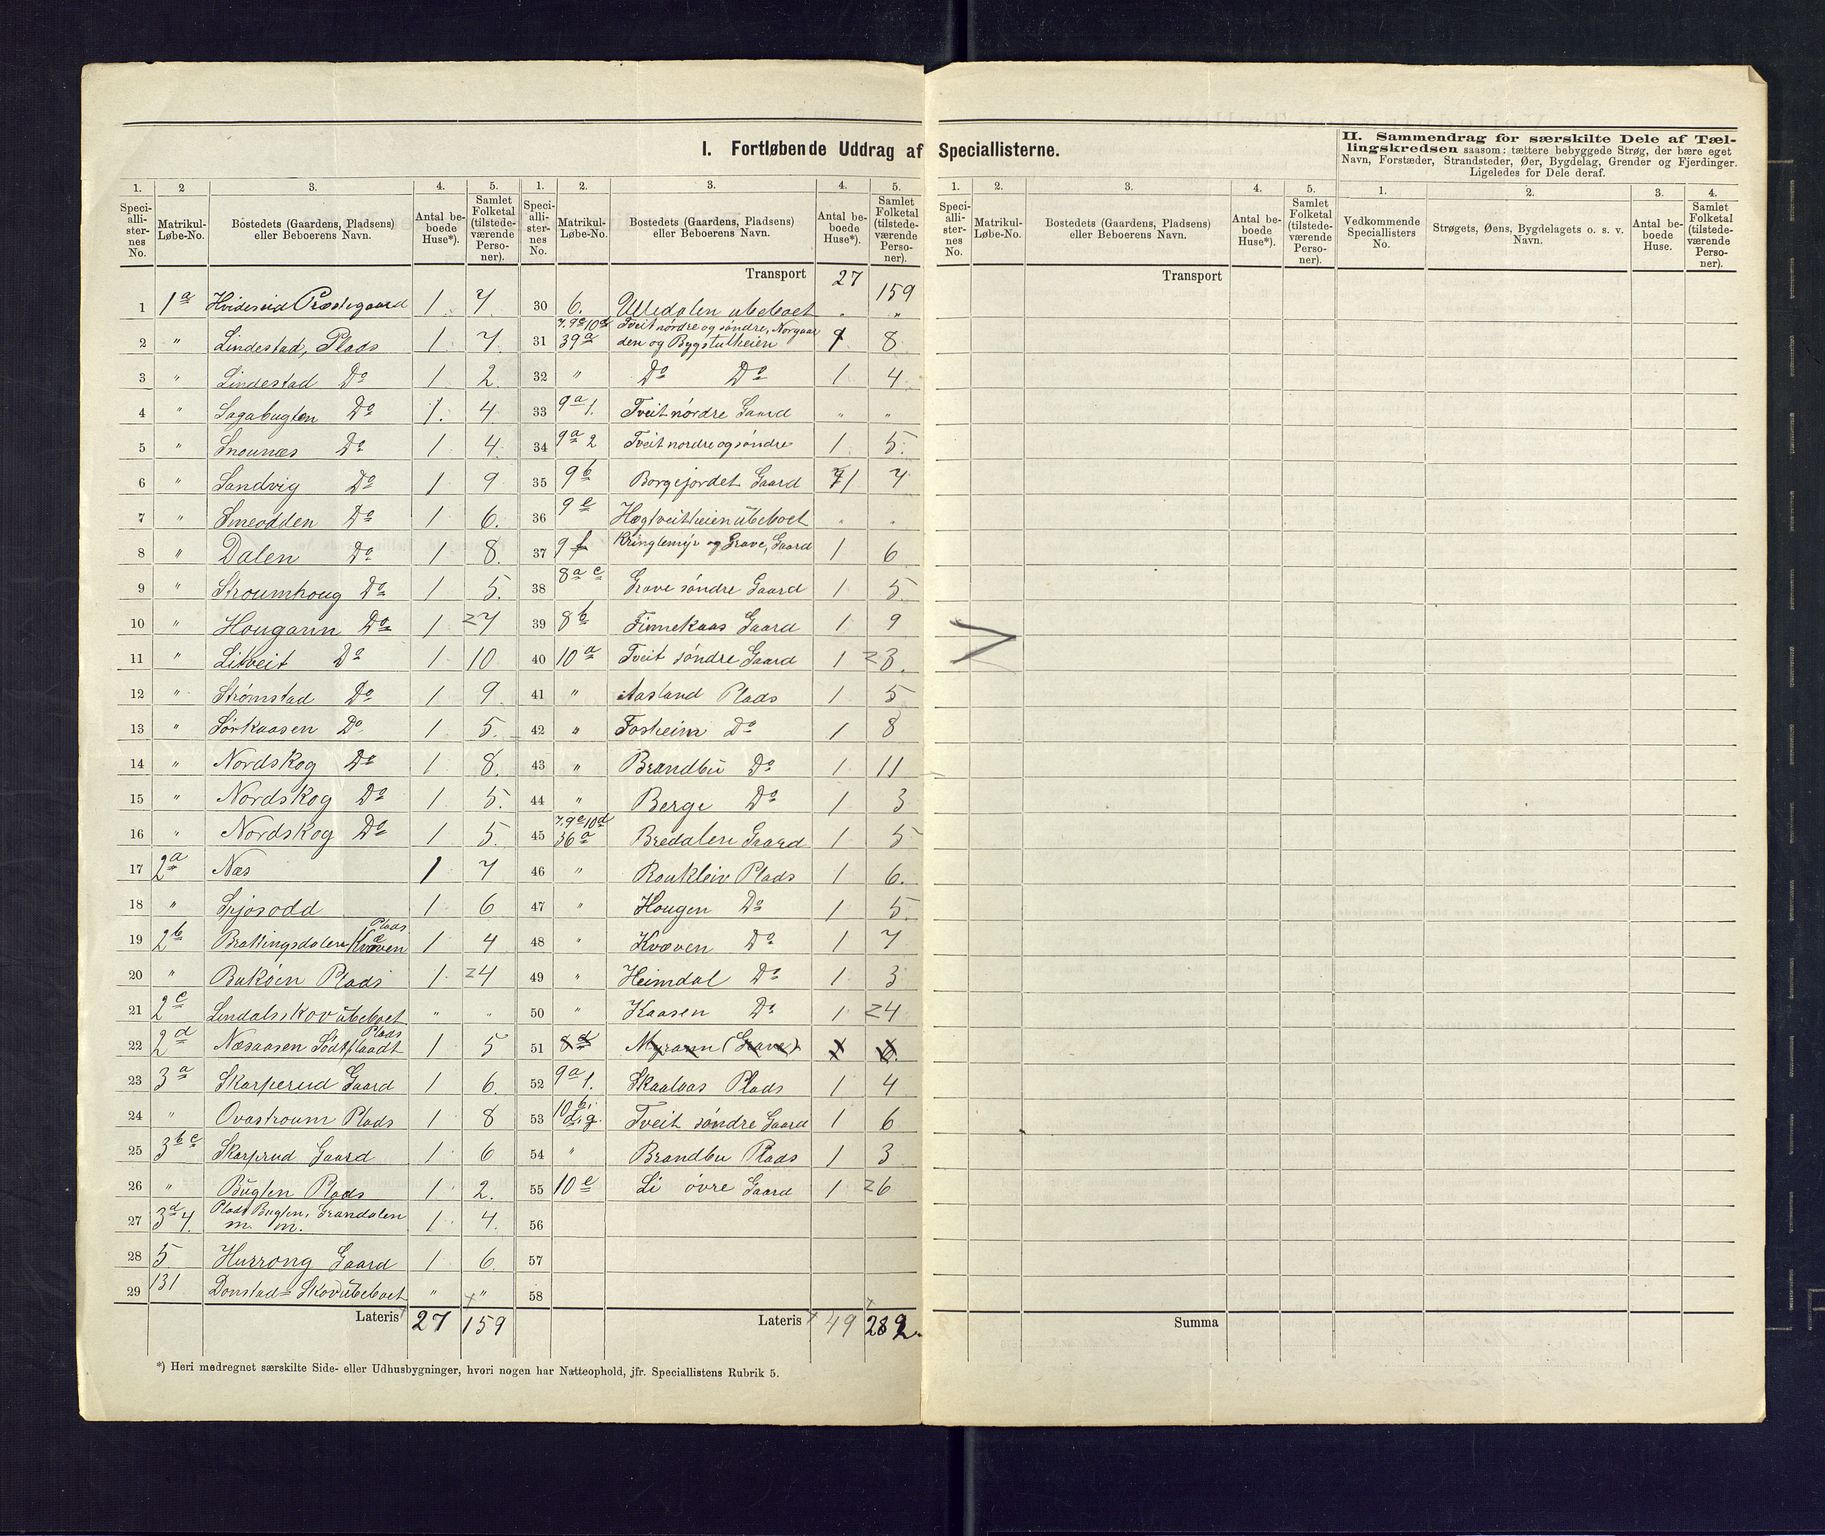 I. Fortløbende Uddrag af Speciallisterne.
II. Sammendrag for særskilte Dele af Tæl-
lingskredsen saasom: tættere bebyggede Strøg, der bære eget
Navn, Forstæder, Strandsteder, Øer, Bygdelag, Grender og Fjerdinger.
Ligeledes for Dele deraf.
1. 2 3. 4. 5. 1. 2. 3. 4. 5. 1. 2. 3. 4. 5. 1. 2. 3. 4.
Speci-allister-nes No. Matrikul-Løbe-No. Bostedets (Gaardens, Pladsens) eller Beboerens Navn. Antal be-boede Huse*). Samlet Folketal (tilstede-værende Perso-ner).
Speci-alli-ster-nes No. Matrikul-Løbe-No. Bostedets (Gaardens, Pladsens) eller Beboerens Navn. Antal be-boede Huse*). Samlet Folketal (tilstede-værende Perso-ner).
Speci-alli-ster-nes No. Matrikul-Løbe-No. Bostedets (Gaardens, Pladsens) eller Beboerens Navn. Antal be-boede Huse*). Samlet Folketal (tilstede-værende Perso-ner).
Vedkommende Speciallisters No. Strøgets, Øens, Bygdelagets o. s. v. Navn. Antal be-boede Huse. Samlet Folketal (tilstede-værende Perso-ner).
1 1a Hvideseid Præstegaard 1 7.
2 " Lindestad, Plads 1 7.
3 " Lindestad Do 1 2.
4 " Sagabugten Do 1. 4
5 " Snounæs Do 1 4.
6 " Sandvig Do 1 9
7 " Smeodden Do 1 6.
8 " Dalen Do 1 8.
9 " Stroumhoug Do 1 5.
10 " Hougann Do 1 27
11 " Litveit Do 1 10
12 " Strømstad Do 1 9.
13 " Sørkaasen Do 1 5.
14 " Nordskog Do 1 8.
15 " Nordskog Do 1 5.
16 " Nordskog Do 1 5.
17 2a Næs 1 7
18 " Sjosodd 1 6
19 2b Brækingsdalen/Kvæven Plads 1 4
20 " Bukøen Plads 1 24
21 2c Lindalsskov übeboet " "
22 2d Næsaasen Sødtflaadt Plads 1 5
23 3a Skarperud Gaard 1 6.
24 " Ovastroum Plads 1 8
25 3bc Skarprud Gaard 1 6
26 " Bugten Plads 1 2.
27 3d4. Plads Bugten, Grandalen m. m. 1 4.
28 5. Hurrong Gaard 1 6.
29 131 Donstad-Skov übeboet " "
Lateris 27 159
Transport 27 159
30 6. Ulledalen ubeboet " "
31 7.9c10d 39a Tveit nordre og søndre, Norgaarden og Bygstulheien 1 8
32 " Do Do 1 4
33 9a1. Tveit nordre Gaard " "
34 9a2 Tveit nordre og søndre 1 5.
35 9b Borgejordet Gaard 1 7
36 9e Høgtveitheien übeboet " "
37 9f Kringlemyr og Grave, Gaard 1 6
38 8a c Grave søndre Gaard 1 5
39 8b Finnekaas Gaard 1 9
40 10a Tveit søndre Gaard 1 23.
41 " Aasland Plads 1 5
42 " Fosheim Do 1 8
43 " Brandbu Do 1 11
44 " Berge Do 1 3
45 7.9e10d 36a Bredalen Gaard 1 5
46 " Roukleiv Plads 1 6.
47 " Hougen Do 1 5.
48 " Kvæven Do 1 7
49 " Heimdal Do 1 3
50 " Kaasen Do 1 24
51 8d Myrann (Grave)
52 9a1. Skaalaas Plads 1 4
53 10b.d.g Tveit søndre Gaard 1 6
54 " Brandbu Plads 1 3
55 10e Li øvre Gaard 1 26
56
57
58
Lateris 49 282.
Transport
Summa
*) Heri medregnet særskilte Side- eller Udhusbygninger, hvori nogen har Natteophold, jfr. Speciallistens Rubrik 5.